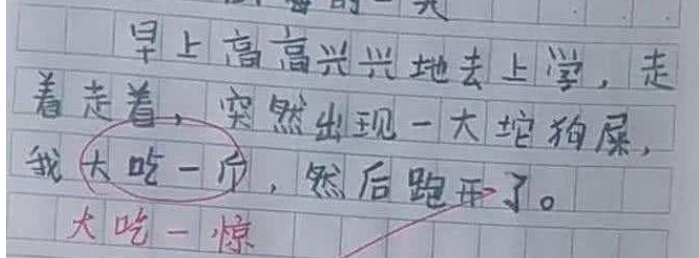 的一天
早上高高兴兴地去上学，走
着走着，突然出现一大坨狗屎，
我大吃一斤，然后跑开了。
大吃一惊